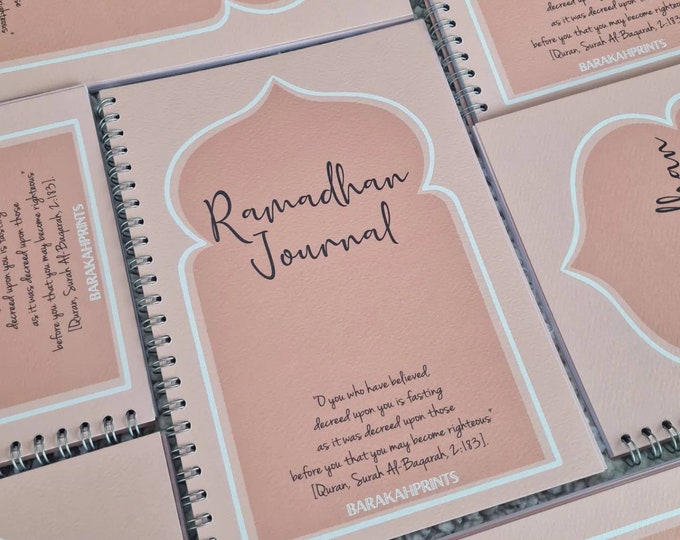 Ramadhan
Journal
"O you who have believed
decreed upon you is fasting
as it was decreed upon those
before you that you may become righteous"
[Quran, Surah Al-Baqarah, 2:183].
BARAKAHPRINTS
decreed upon you is fasting
as it was decreed upon those
before you that you may become righteous"
[Quran, Surah Al-Baqarah, 2:183].
BARAKAHPRINTS
as it was decreed upon those
before you that you may become righteous"
[Quran, Surah Al-Baqarah, 2:183].
BARAKAHPRINTS